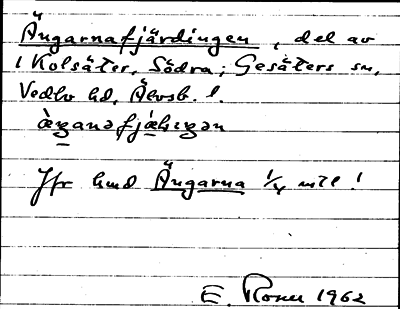 Ängarnafjärdingen, del av
1 Kolsäter, Södra; Gesäters sn,
Vedbo hd, Älvsb. l.
Jfr hmd Ängarna 1/4 mtl !
E. Rosen 1962